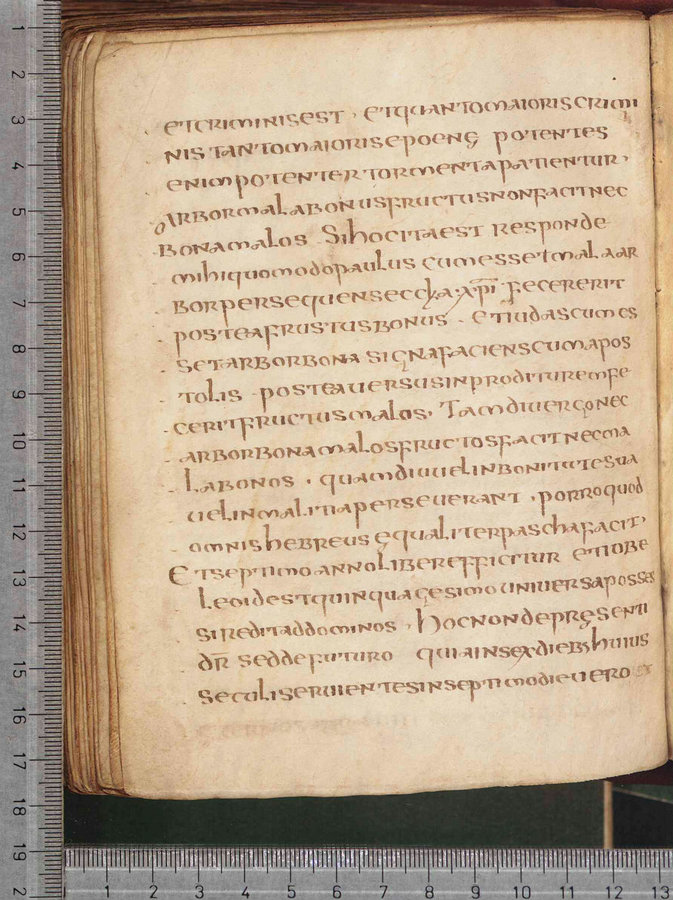 et criminis est · et quanto maioris crimi
nis tanto maioris e poenę potentes
enim potenter tormenta patientur ·
arbor mala bonus fructus non facit nec
bona malos Si hoc ita est responde
mihi quomodo paulus cum esset mala ar
bor persequens eccla xpi fecererit
postea frustus bonus · et iudas cum es
set arbor bona signa faciens cum apos
tolis · postea uersus in proditurem fe
cerit fructus malos · Tamdiu ergo nec
arbor bona malos fructos facit nec ma
la bonos · quamdiu uel in bonitute sua
uel in malitia perseuerant · porro quod
omnis hebreus ęqualiter pascha facit ·
Et septimo anno liber efficitur et iobe
leo id est quinquagesimo uniuersa posses
si redit ad dominos · hoc non de pręsenti
dr sed de futuro quia in sex dieb; huius
seculi seruientes in septimo die uero
1 2 3 4 5 6 7 8 9 10 11 12 13 14 15 16 17 18 19 2
1 2 3 4 5 6 7 8 9 10 11 12 13